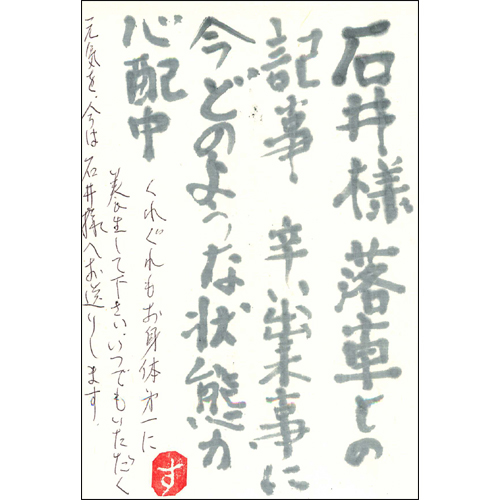 石井様 落車との
記事 辛い出来事に
今どのような状態か
心配中
くれぐれもお身体第一に
養生して下さい、いつでもいただく
元気を、今は石井様へお送りします.
す